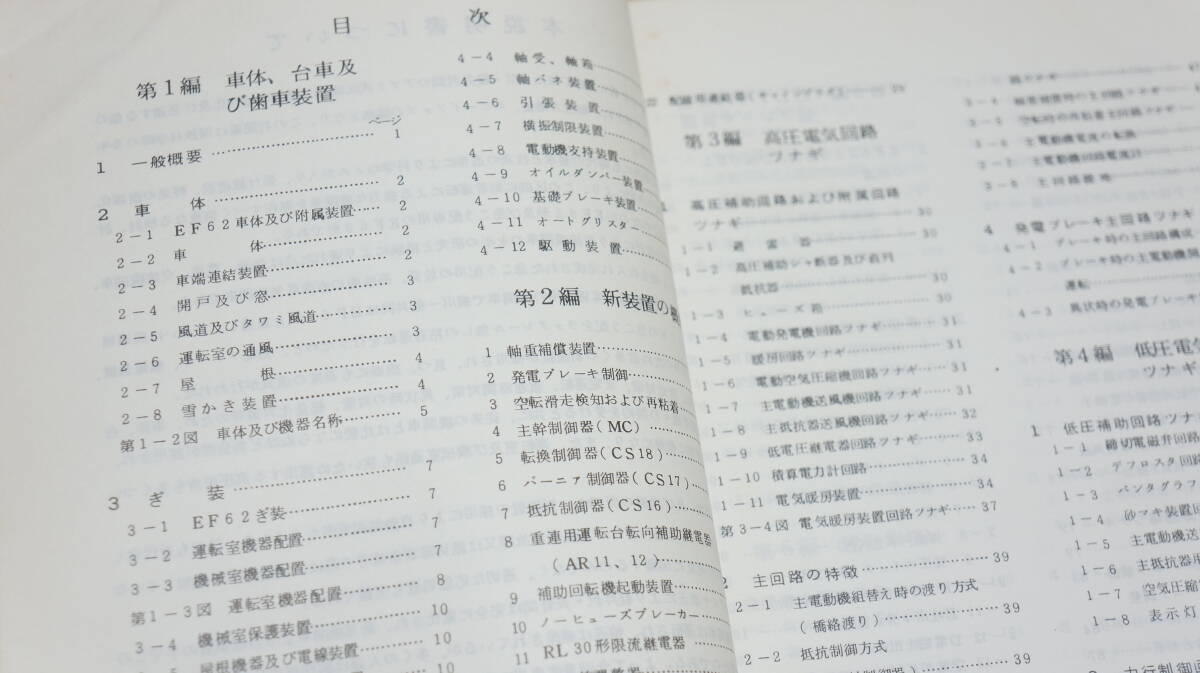 目　次
第1編　車体、台車及
び歯車装置
ページ
1　一般概要 …… 1
2　車　体 …… 2
2－1　EF62車体及び附属装置 …… 2
2－2　車　体 …… 2
2－3　車端連結装置 …… 2
2－4　開戸及び窓 …… 3
2－5　風道及びタワミ風道 …… 3
2－6　運転室の通風 …… 3
2－7　屋　根 …… 4
2－8　雪かき装置 …… 4
第1－2図　車体及び機器名称 …… 5
3　ぎ　装 …… 7
3－1　EF62ぎ装 …… 7
3－2　運転室機器配置 …… 7
3－3　機械室機器配置 …… 7
第1－3図　運転室機器配置 …… 8
3－4　機械室保護装置 …… 10
屋根機器及び電線装置 …… 10
4－4　軸受、軸箱 ……
4－5　軸バネ装置 ……
4－6　引張装置 ……
4－7　横振制限装置 ……
4－8　電動機支持装置 ……
4－9　オイルダンパー装置
4－10　基礎ブレーキ装置 ……
4－11　オートグリスター ……
4－12　駆動装置 ……
第2編　新装置の
1　軸重補償装置 ……
2　発電ブレーキ制御 ……
3　空転滑走検知および再粘着
4　主幹制御器(MC) ……
5　転換制御器(CS18) ……
6　バーニア制御器(CS17)
7　抵抗制御器(CS16) ……
8　重連用運転台転向補助継電器
(AR11、12) ……
9　補助回転機起動装置 ……
10　ノーヒューズブレーカー ……
11　RL30形限流継電器
第3編　高圧電気回路
ツナギ
1　高圧補助回路および附属回路
ツナギ
1－1　避雷器 …… 30
1－2　高圧補助シャ断器及び直列
抵抗器 …… 30
1－3　ヒューズ箱 …… 30
1－4　電動発電機回路ツナギ …… 31
1－5　暖房回路ツナギ …… 31
1－6　電動空気圧縮機回路ツナギ …… 31
1－7　主電動機送風機回路ツナギ …… 31
1－8　主抵抗器送風機回路ツナギ …… 32
1－9　低電圧継電器回路ツナギ …… 33
1－10　積算電力計回路 …… 34
1－11　電気暖房装置 …… 34
第3－4図　電気暖房装置回路ツナギ …… 37
2　主回路の特徴 …… 39
2－1　主電動機組替え時の渡り方式
(橋絡渡り) …… 39
2－2　抵抗制御方式
39
主電動機電流の転換
主電動機回路電流計
3－8　主回路接地
4　発電ブレーキ主回路ツナギ
4－1　ブレーキ時の主回路構成
4－2　ブレーキ時の主電動機開
運転 ……
4－3　異状時の発電ブレーキ
第4編　低圧電気
ツナギ
1　低圧補助回路ツナギ
1－1　締切電磁弁回路
1－2　デフロスタ回路
1－3　パンタグラフ
1－4　砂マキ装置回
1－5　主電動機送
1－6　主抵抗器用
1－7　空気圧縮
1－8　表示灯
力行制御